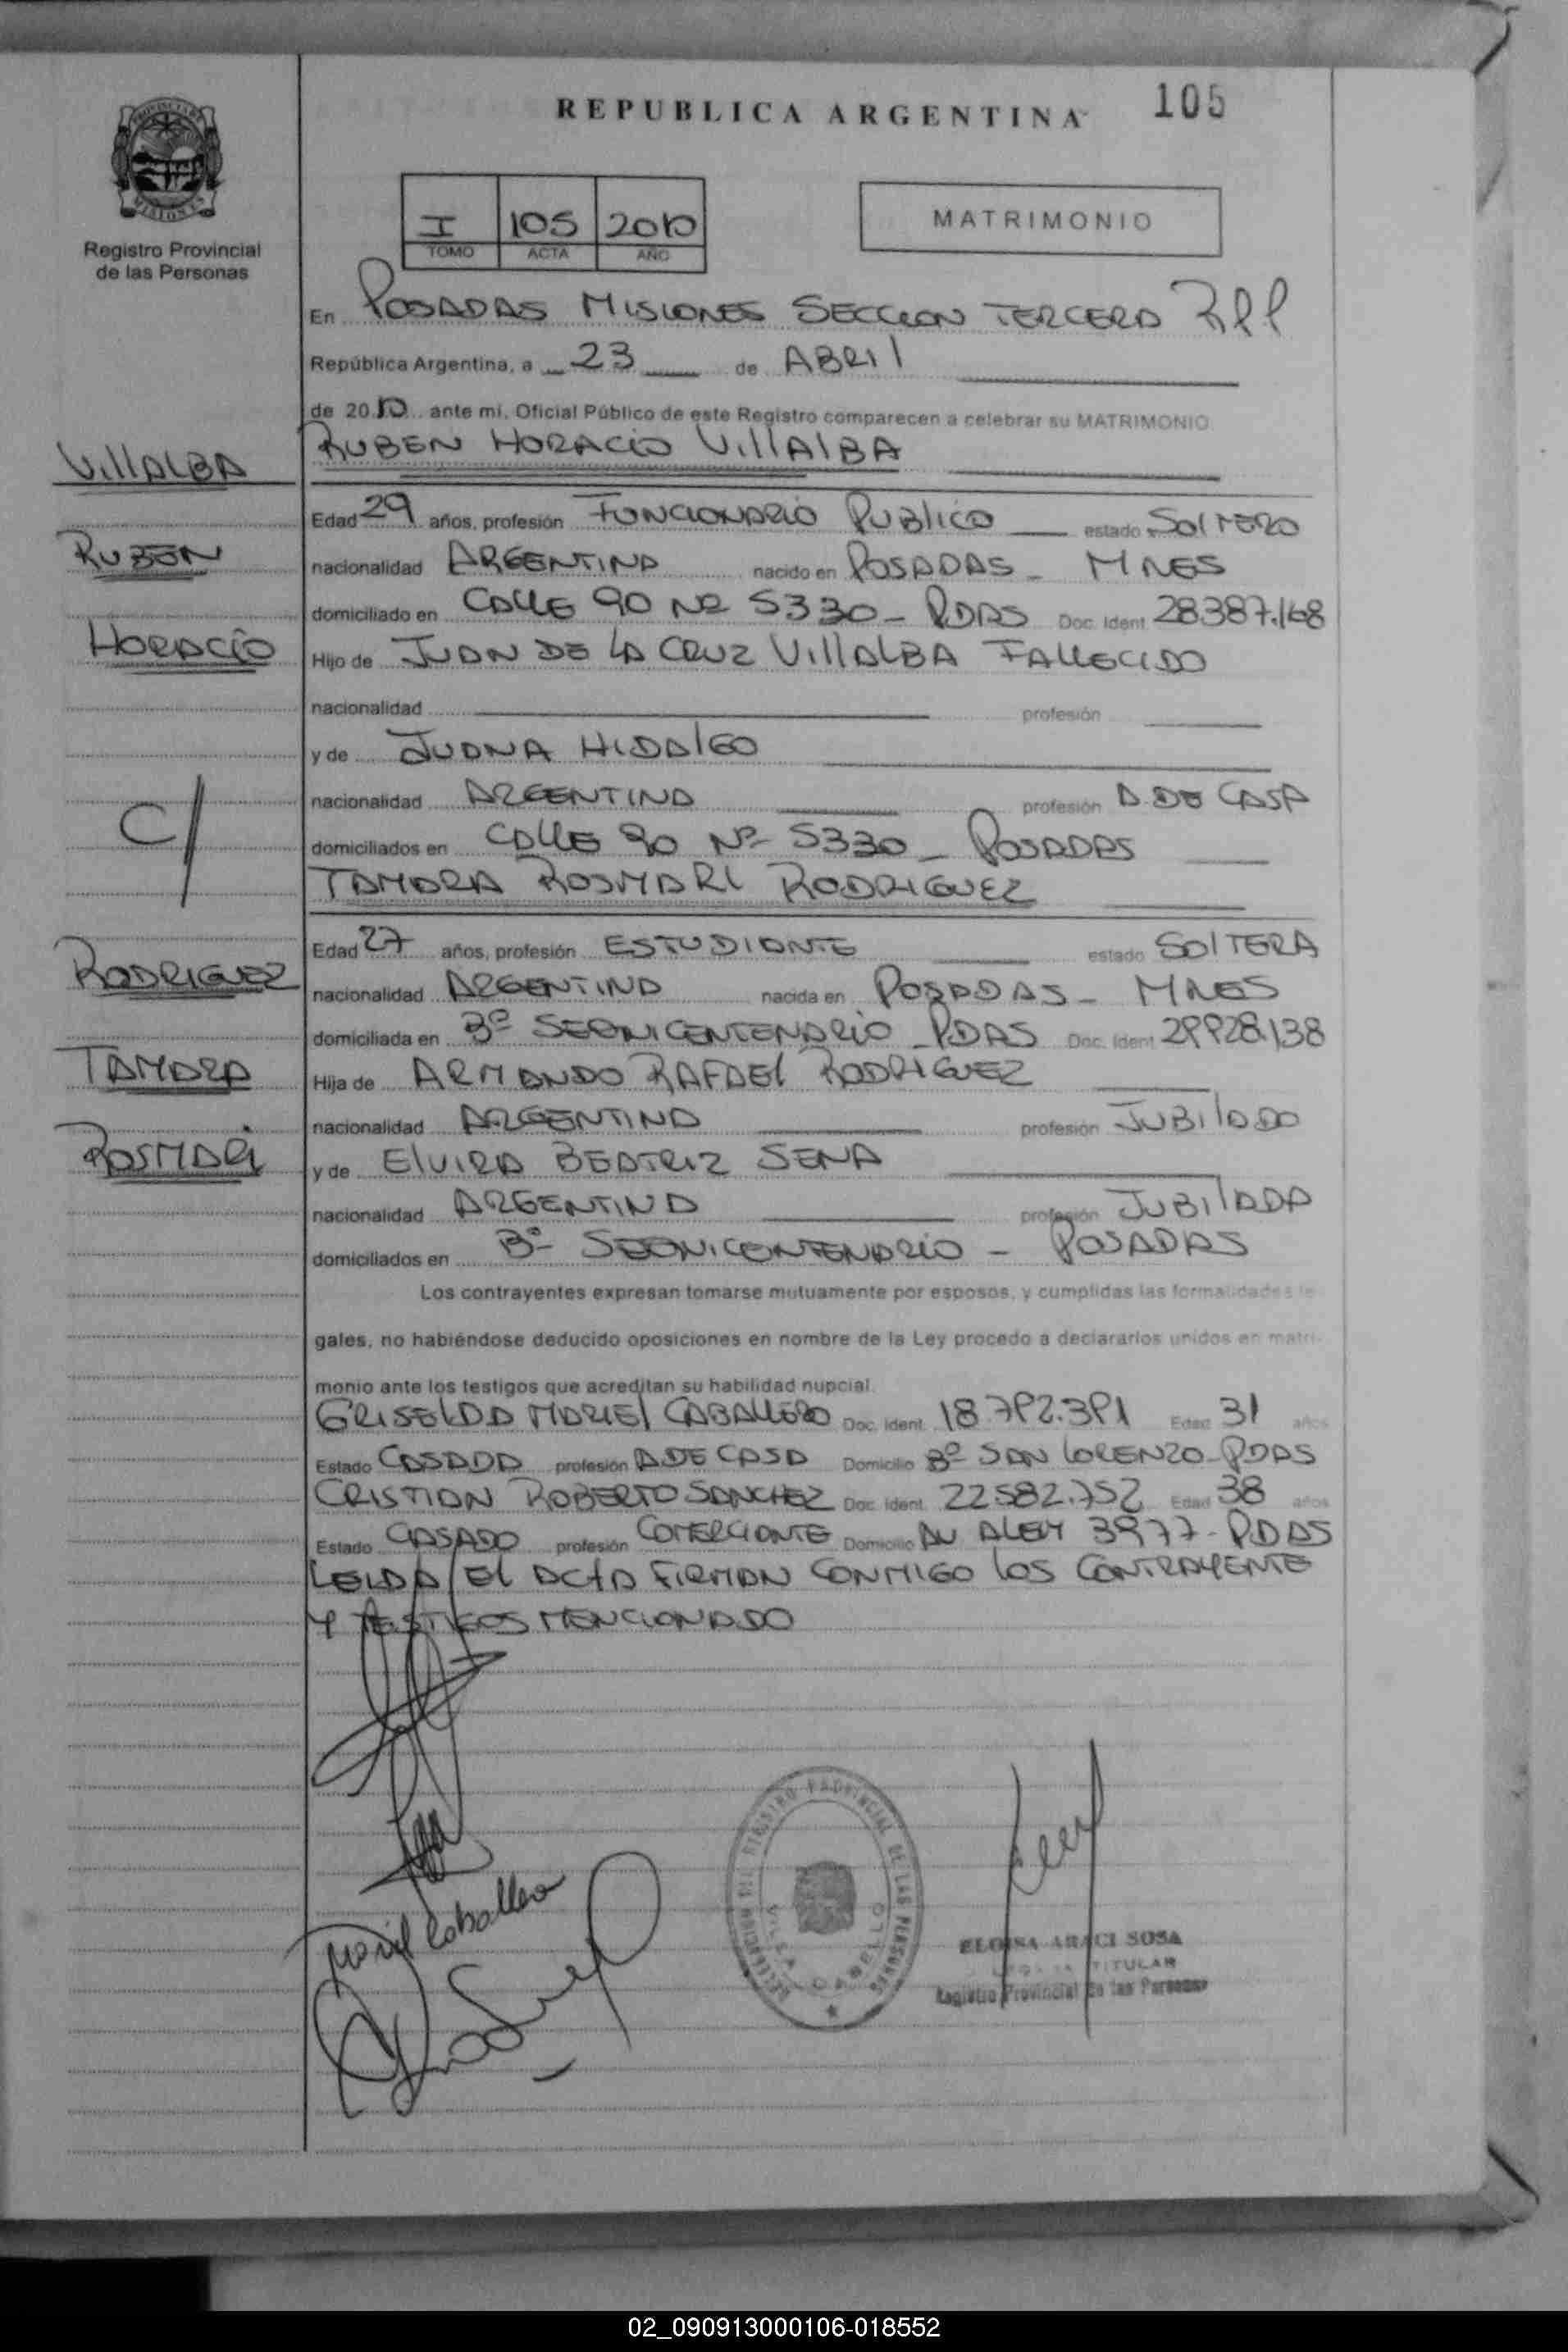 REPUBLICA ARGENTINA 105
PROVINCIA DE
MISIONES
Registro Provincial
de las Personas
I 105 2010
TOMO ACTA AÑO
MATRIMONIO
En POSADAS MISIONES SECCION TERCERA RPP
República Argentina, a 23 de ABRIL
de 2010 ante mi, Oficial Público de este Registro comparecen a celebrar su MATRIMONIO
VILLALBA RUBEN HORACIO VILLALBA
Edad 29 años, profesión FUNCIONARIO PUBLICO estado SOLTERO
RUBEN nacionalidad ARGENTINA nacido en POSADAS - MNES
domiciliado en CALLE 90 Nº 5330 - PDAS Doc. Ident. 28.387.168
HORACIO Hijo de JUAN DE LA CRUZ VILLALBA FALLECIDO
nacionalidad profesión
y de JUANA HIDALGO
C/ nacionalidad ARGENTINA profesión A. DE CASA
domiciliados en CALLE 90 Nº 5330 - POSADAS
TAMARA ROSMARI RODRIGUEZ
Edad 27 años, profesión ESTUDIANTE estado SOLTERA
RODRIGUEZ nacionalidad ARGENTINA nacida en POSADAS - MNES
domiciliada en Bº SESQUICENTENARIO - PDAS Doc. Ident. 29.928.138
TAMARA Hija de ARMANDO RAFAEL RODRIGUEZ
nacionalidad ARGENTINA profesión JUBILADO
ROSMARI y de ELVIRA BEATRIZ SENA
nacionalidad ARGENTINA profesión JUBILADA
domiciliados en Bº SESQUICENTENARIO - POSADAS
Los contrayentes expresan tomarse mutuamente por esposos, y cumplidas las formalidades le-
gales, no habiéndose deducido oposiciones en nombre de la Ley procedo a declararlos unidos en matri-
monio ante los testigos que acreditan su habilidad nupcial.
GRISELDA MARIEL CABALLERO Doc. Ident. 18.792.391 Edad 31 años
Estado CASADA profesión A.DE CASA Domicilio Bº SAN LORENZO - PDAS
CRISTIAN ROBERTO SANCHEZ Doc. Ident. 22.582.752 Edad 38 años
Estado CASADO profesión COMERCIANTE Domicilio AV ALEM 3977 - PDAS
LEIDA EL ACTA FIRMAN CONMIGO LOS CONTRAYENTE
Y TESTIGOS MENCIONADO
Mariel Caballero
DELEGACION DEL REGISTRO PROVINCIAL DE LAS PERSONAS
VILLA CABELLO
ELOISA ARACI SOSA
TITULAR
Registro Provincial de las Personas
02_090913000106-018552